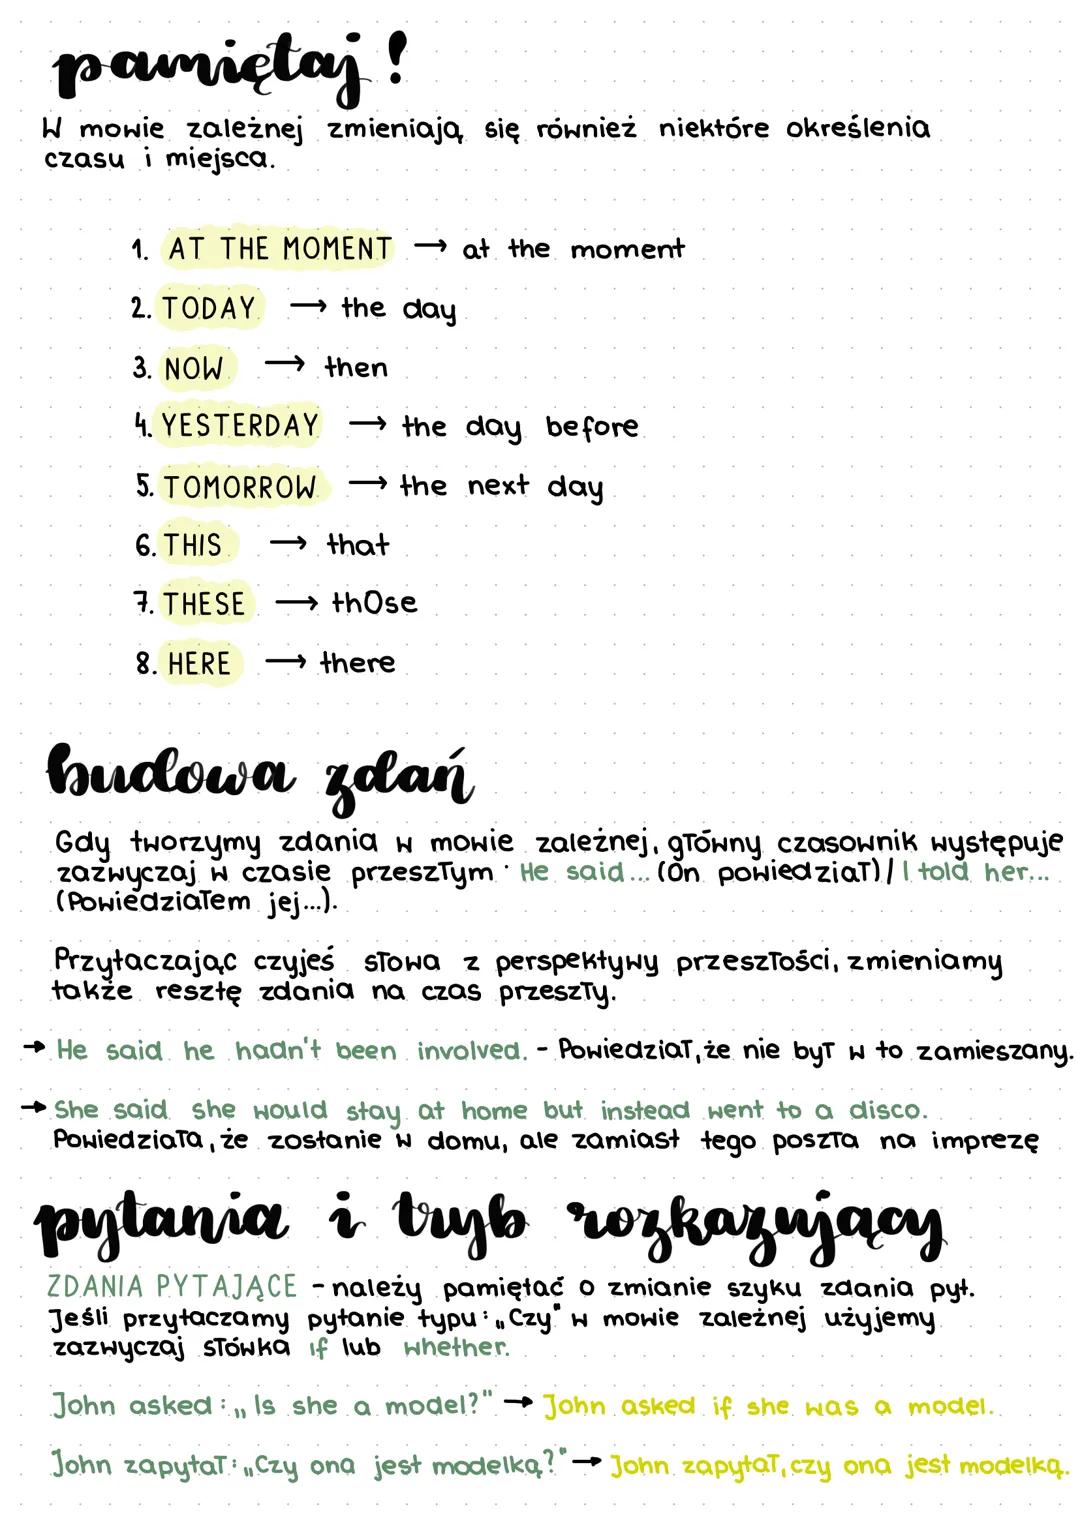 pamiętaj!
W mowie zależnej zmieniają się również niektóre określenia
czasu i miejsca.
1. AT THE MOMENT → at the moment
2. TODAY → the day
3. NOW → then
4. YESTERDAY → the day before
5. TOMORROW → the next day
6. THIS → that
7. THESE → thOse
8. HERE → there
budowa zdań
Gdy tworzymy zdania w mowie zależnej, główny czasownik występuje
zazwyczaj w czasie przeszłym: He said... (On powiedział) / I told her...
(Powiedziałem jej...).
Przytaczając czyjeś słowa z perspektywy przeszłości, zmieniamy
także resztę zdania na czas przeszły.
→ He said he hadn't been involved. - Powiedział, że nie był w to zamieszany.
→ She said she would stay at home but instead went to a disco.
Powiedziała, że zostanie w domu, ale zamiast tego poszła na imprezę
pytania i tryb rozkazujący
ZDANIA PYTAJĄCE - należy pamiętać o zmianie szyku zdania pyt.
Jeśli przytaczamy pytanie typu: „Czy" w mowie zależnej użyjemy
zazwyczaj słówka if lub whether.
John asked: „Is she a model?" → John asked if she was a model.
John zapytał: „Czy ona jest modelką?" → John zapytał, czy ona jest modelką.